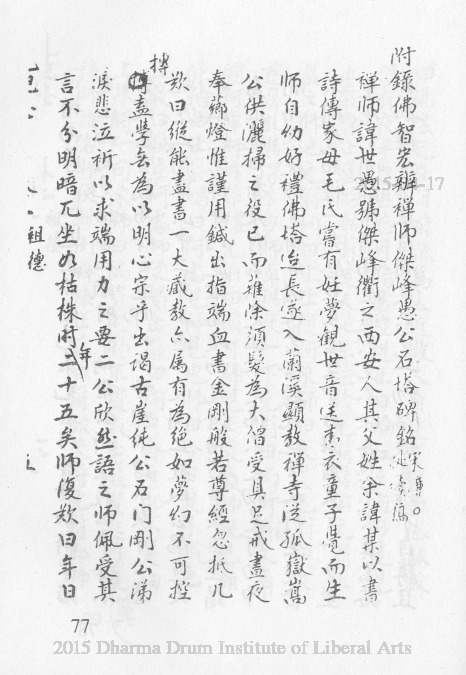 附錄佛智宏辯禪師傑峰愚公石塔碑銘 宋景濂續稿。
禪師諱世愚號傑峰衢之西安人其父姓余諱某以書
詩傳家母毛氏嘗有妊夢觀世音送青衣童子覺而生
師自幼好禮佛塔迨長遂入蘭溪顯教禪寺從孤嶽嵩
公供灑掃之役已而薙除須髮為大僧受具足戒盡夜
奉鄉燈惟謹用鍼出指端血書金剛般若尊經忽抵几
歎曰縱能盡書一大藏教亦属有為絕如夢幻不可控
摶盍學無為以明心宗乎出謁古崖純公石門剛公涕
淚悲泣祈以求端用力之要二公欣然語之師佩受其
言不分明暗兀坐如枯株時年二十五矣師復歎曰年日
祖德
77
2015-17
2015 Dharma Drum Institute of Liberal Arts